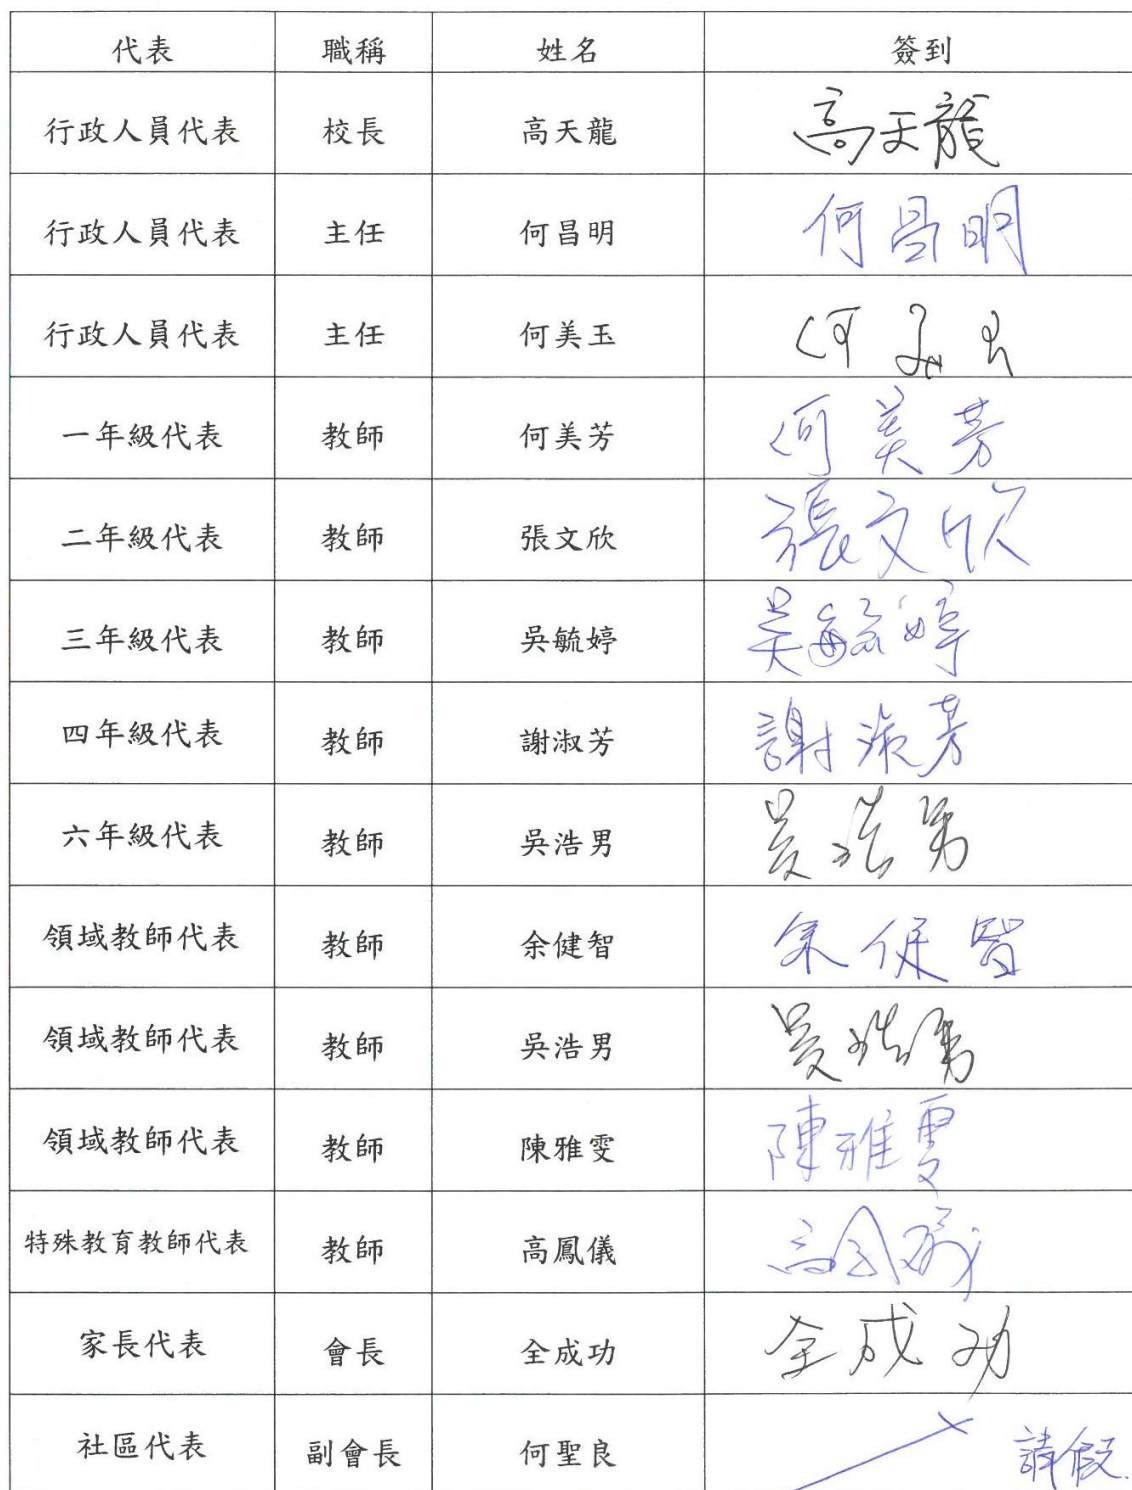 代表 職稱 姓名 簽到
行政人員代表 校長 高天龍 高天龍
行政人員代表 主任 何昌明 何昌明
行政人員代表 主任 何美玉 何美玉
一年級代表 教師 何美芳 何美芳
二年級代表 教師 張文欣 張文欣
三年級代表 教師 吳毓婷 吳毓婷
四年級代表 教師 謝淑芳 謝淑芳
六年級代表 教師 吳浩男 吳浩男
領域教師代表 教師 余健智 余健智
領域教師代表 教師 吳浩男 吳浩男
領域教師代表 教師 陳雅雯 陳雅雯
特殊教育教師代表 教師 高鳳儀 高鳳儀
家長代表 會長 全成功 全成功
社區代表 副會長 何聖良 請假